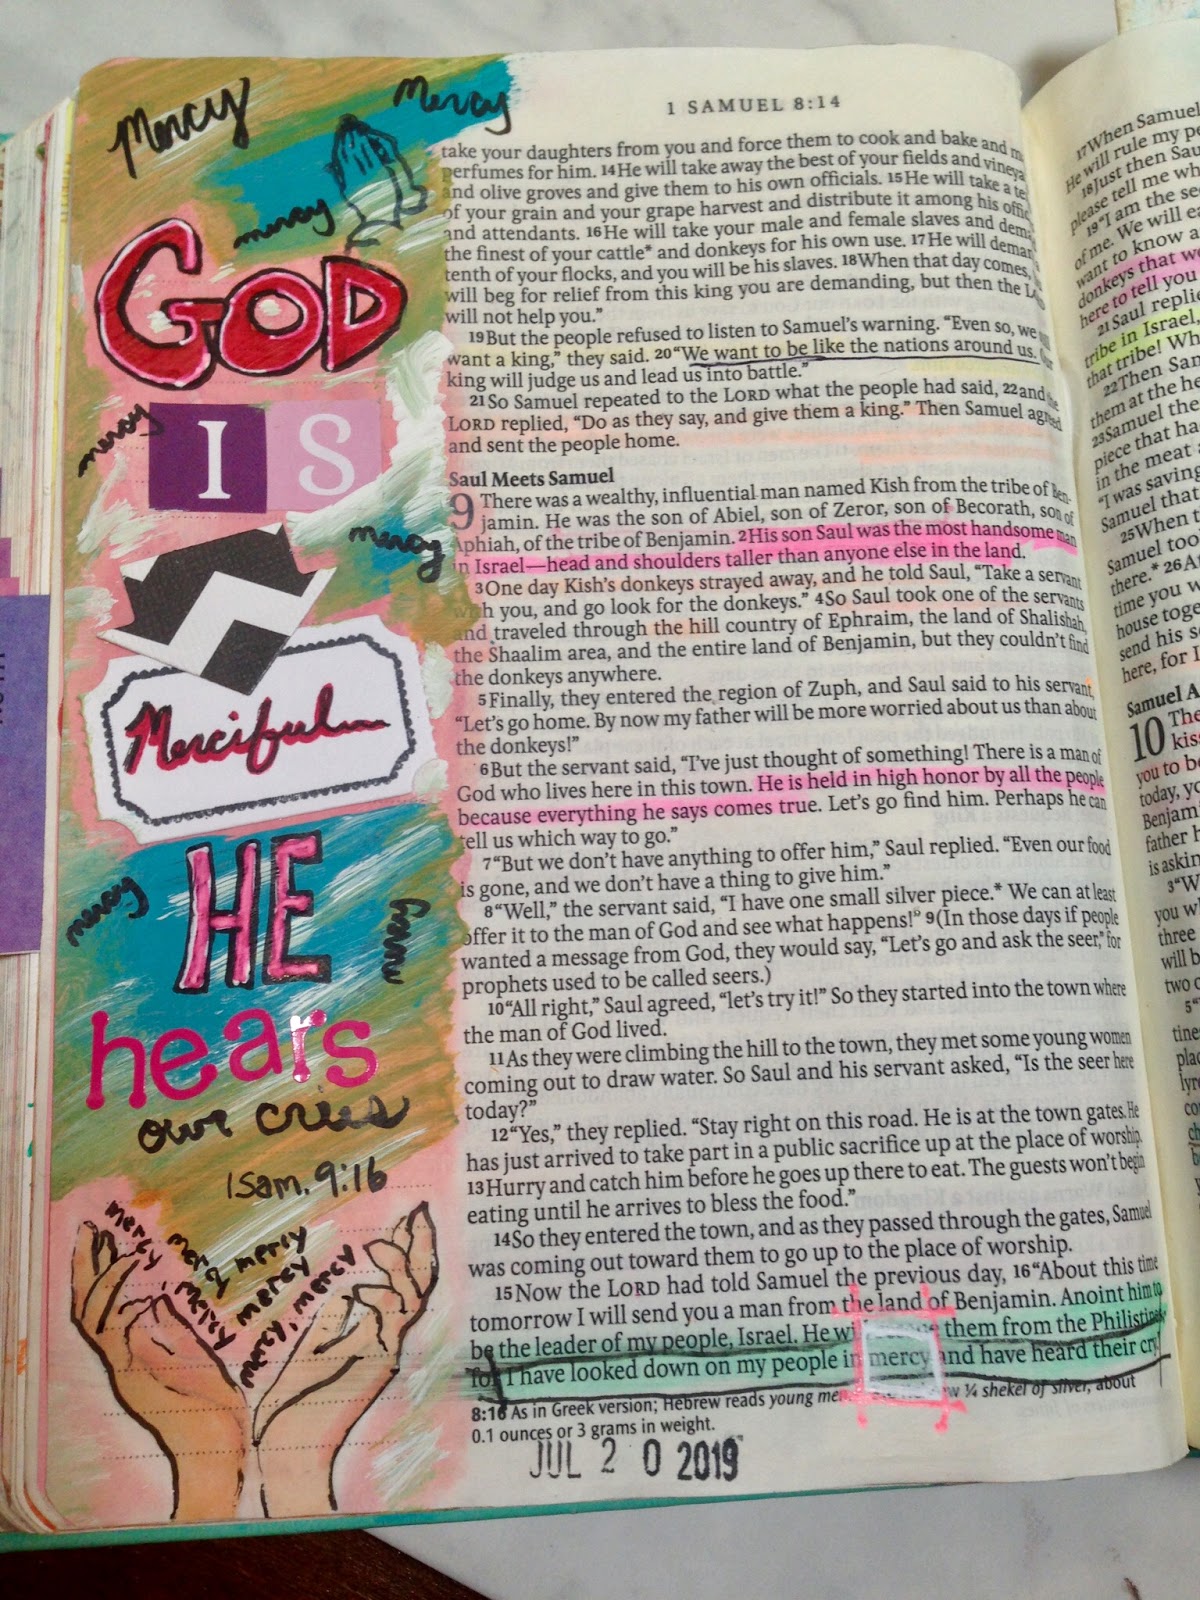 Mercy
Mercy
mercy
GOD
mercy
IS
mercy
Merciful
HE
mercy
mercy
hears
our cries
1 Sam. 9:16
mercy
mercy
mercy
mercy
mercy, mercy
1 SAMUEL 8:14
take your daughters from you and force them to cook and bake and
perfumes for him. 14He will take away the best of your fields and
and olive groves and give them to his own officials. 15He will take a
of your grain and your grape harvest and distribute it among his
and attendants. 16He will take your male and female slaves and
the finest of your cattle* and donkeys for his own use. 17He will
tenth of your flocks, and you will be his slaves. 18When that day comes,
will beg for relief from this king you are demanding, but then the
will not help you.”
19But the people refused to listen to Samuel’s warning. “Even so, we
want a king,” they said. 20“We want to be like the nations around us. Our
king will judge us and lead us into battle.”
21So Samuel repeated to the LORD what the people had said, 22and the
LORD replied, “Do as they say, and give them a king.” Then Samuel agreed
and sent the people home.
Saul Meets Samuel
9 There was a wealthy, influential man named Kish from the tribe of Ben-
jamin. He was the son of Abiel, son of Zeror, son of Becorath, son of
Aphiah, of the tribe of Benjamin. 2His son Saul was the most handsome man
in Israel—head and shoulders taller than anyone else in the land.
3One day Kish’s donkeys strayed away, and he told Saul, “Take a servant
with you, and go look for the donkeys.” 4So Saul took one of the servants
and traveled through the hill country of Ephraim, the land of Shalishah,
the Shaalim area, and the entire land of Benjamin, but they couldn’t find
the donkeys anywhere.
5Finally, they entered the region of Zuph, and Saul said to his servant,
“Let’s go home. By now my father will be more worried about us than about
the donkeys!”
6But the servant said, “I’ve just thought of something! There is a man of
God who lives here in this town. He is held in high honor by all the people
because everything he says comes true. Let’s go find him. Perhaps he can
tell us which way to go.”
7“But we don’t have anything to offer him,” Saul replied. “Even our food
is gone, and we don’t have a thing to give him.”
8“Well,” the servant said, “I have one small silver piece.* We can at least
offer it to the man of God and see what happens!” 9(In those days if people
wanted a message from God, they would say, “Let’s go and ask the seer,” for
prophets used to be called seers.)
10“All right,” Saul agreed, “let’s try it!” So they started into the town where
the man of God lived.
11As they were climbing the hill to the town, they met some young women
coming out to draw water. So Saul and his servant asked, “Is the seer here
today?”
12“Yes,” they replied. “Stay right on this road. He is at the town gates. He
has just arrived to take part in a public sacrifice up at the place of worship.
13Hurry and catch him before he goes up there to eat. The guests won’t begin
eating until he arrives to bless the food.”
14So they entered the town, and as they passed through the gates, Samuel
was coming out toward them to go up to the place of worship.
15Now the LORD had told Samuel the previous day, 16“About this time
tomorrow I will send you a man from the land of Benjamin. Anoint him to
be the leader of my people, Israel. He will them from the Philistines,
for I have looked down on my people in mercy and have heard their cry.”
8:16 As in Greek version; Hebrew reads young men. ¼ shekel of silver, about
0.1 ounces or 3 grams in weight.
JUL 20 2019
17When Samuel
He will rule my
18Just then Saul
please tell me
19“I am the
of me. We will
want to know
donkeys that
here to tell you
21Saul replied
tribe in Israel,
that tribe!
22Then
them at the
23Samuel
piece that
in the meat
“I was saving
Samuel
25When
Samuel took
there.* 26
time you
house
send his
here, for I
Samuel
10
you to be
today,
father
is
3“
you
three
will
two
5“